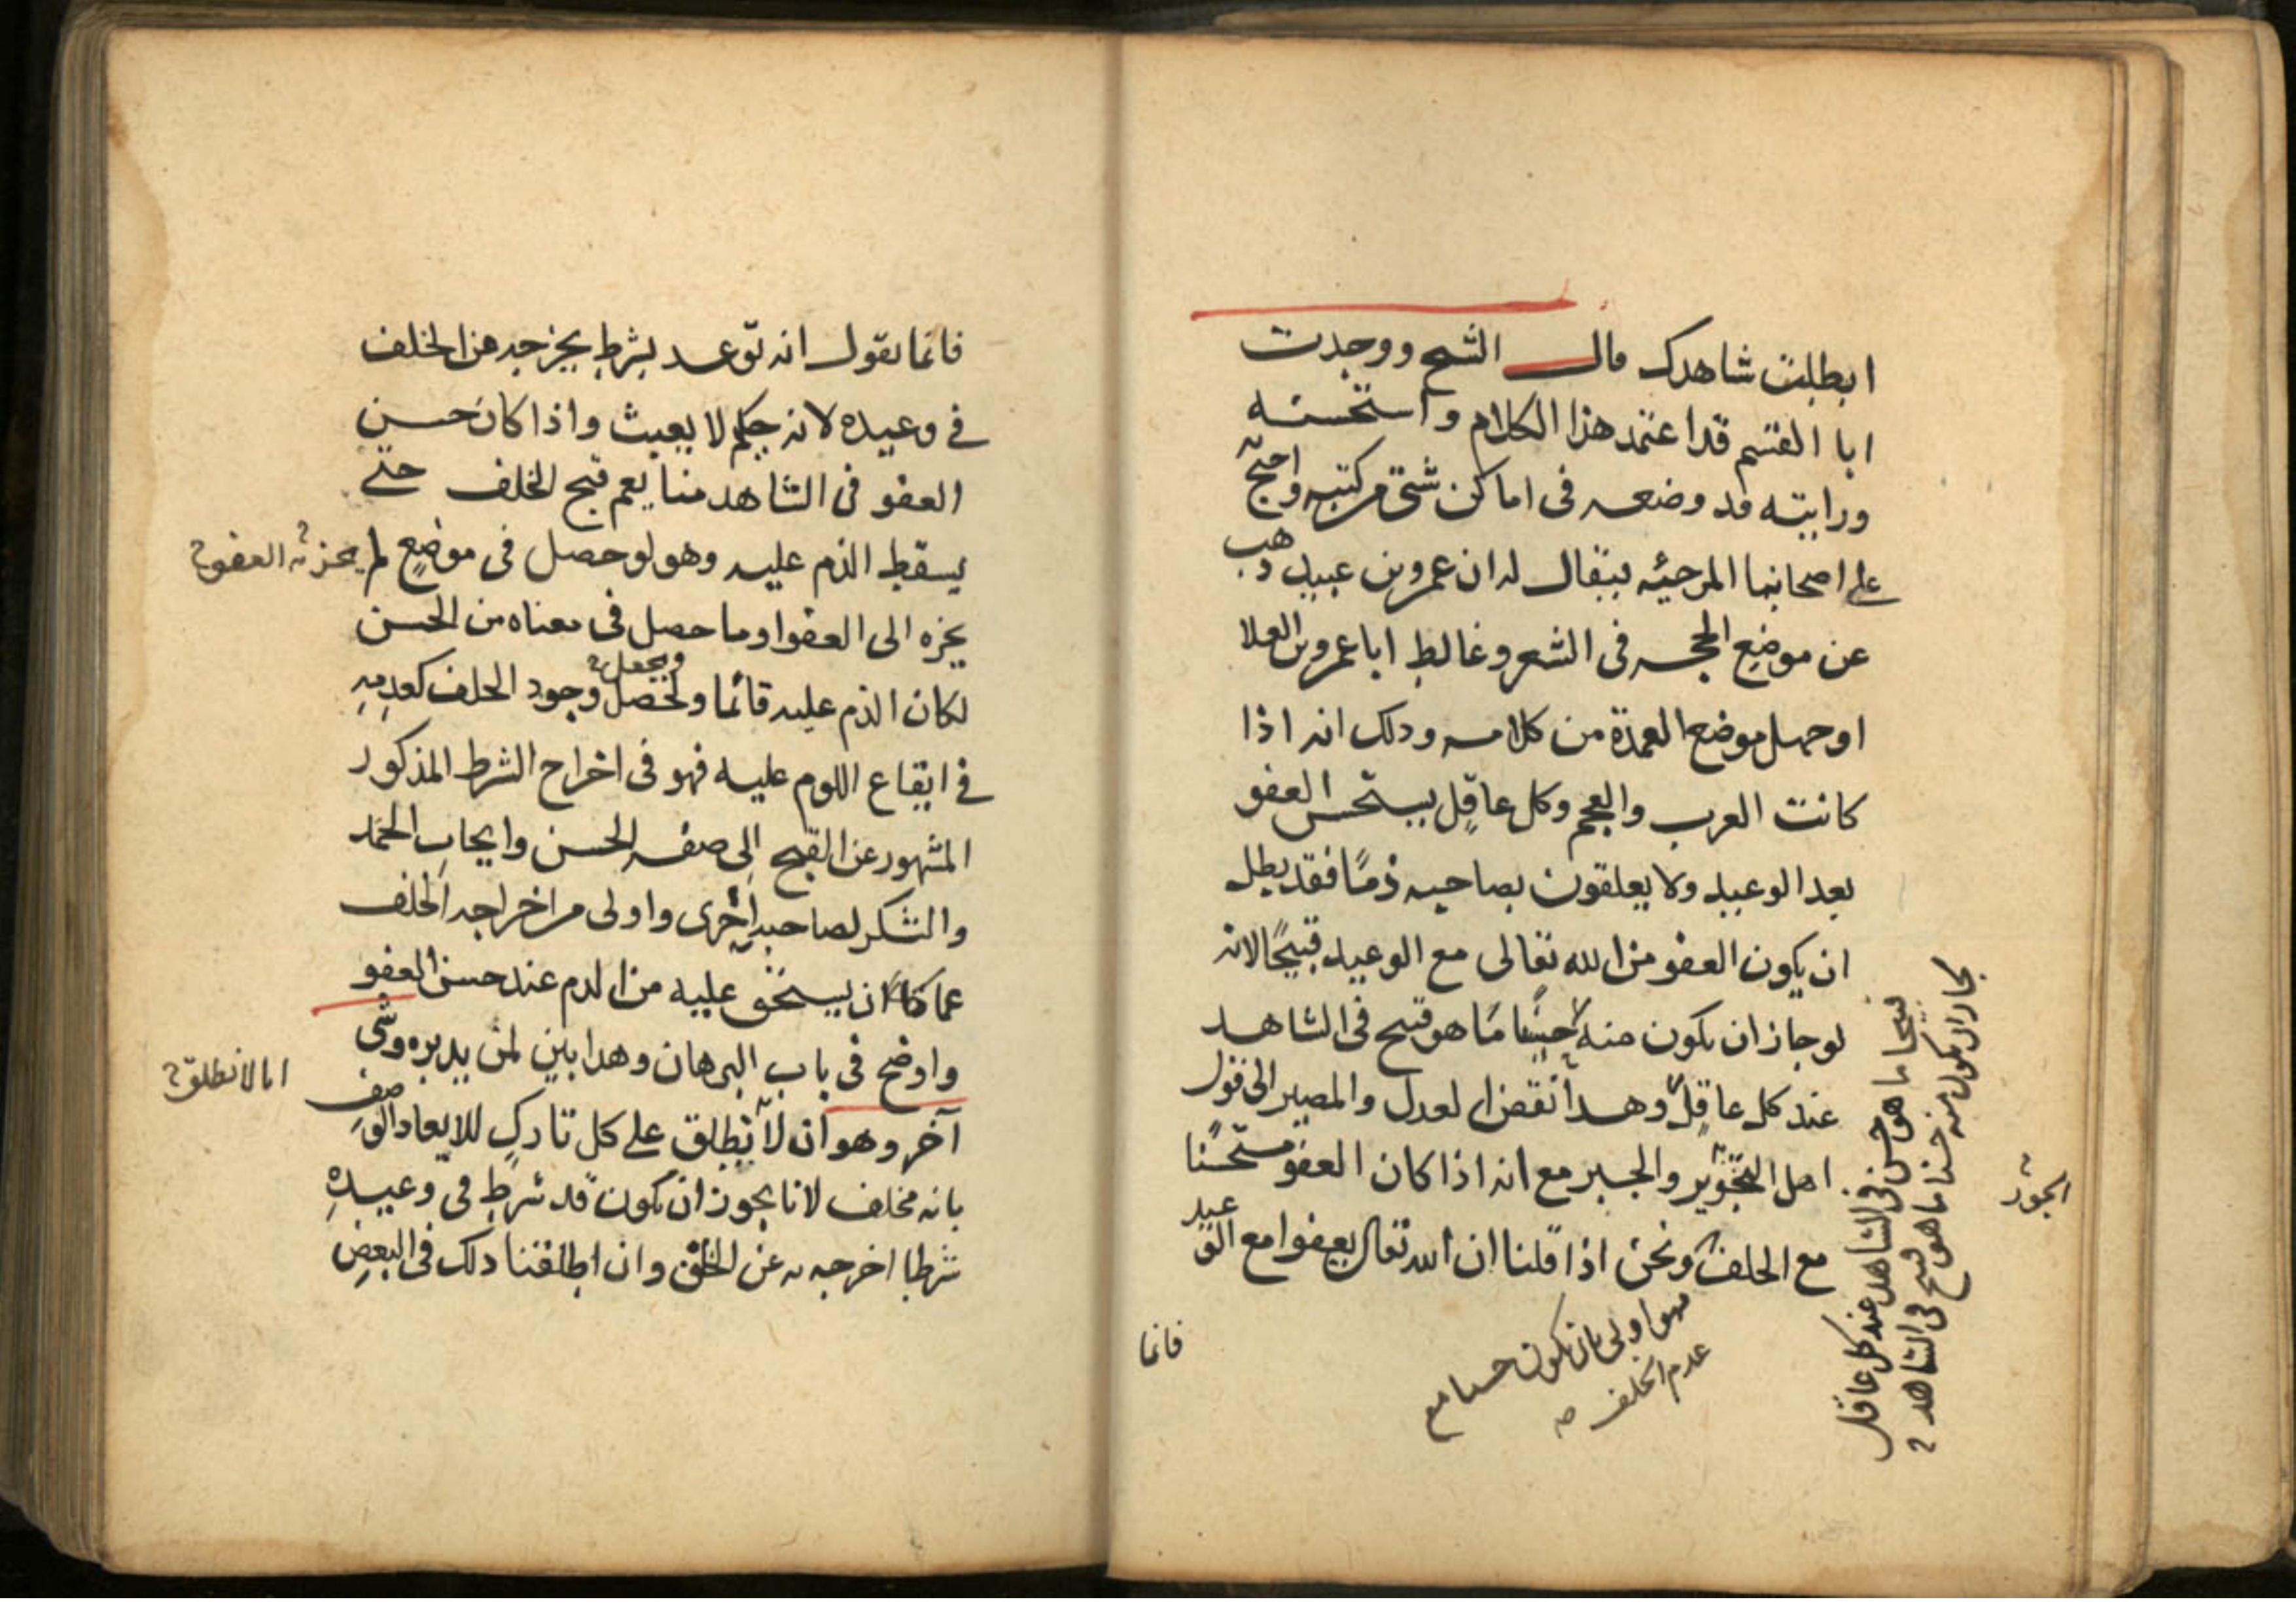 ابطلت شاهدك قال الشيخ ووجدت
ابا القسم قد اعتمد هذا الكلام واستحسنه
ورايته قد وضعه فى اماكن شتى من كتبه واحتج به
على اصحابنا المرجئه فيقال له ان عمرو بن عبيد ذهب
عن موضع الحجه فى الشعر وغالط ابا عمرو بن العلا
او جهل موضع العمدة من كلامه وذلك انه اذا
كانت العرب والعجم وكل عاقل يستحسن العفو
بعد الوعيد ولا يعلقون بصاحبه ذمًا فقد بطل
ان يكون العفو من الله تعالى مع الوعيد قبيحًا لانه
لو جاز ان يكون منه حسنًا ما هو قبيح فى الشاهد
عند كل عاقل وهذا نقض العدل والمصير الى قول
اهل التجوير والجبر مع انه اذا كان العفو مستحسنًا
مع الخلف ونحن اذا قلنا ان الله تعالى يعفوا مع الوعيد
فهو اولى بان يكون حسنا مع
عدم الخلف صه
قبيحا ما هو حسن فى الشاهد عند كل عاقل
لجاز ان يكون منه حسنا ما هو قبيح فى الشاهد
الجور
فانما
فانما نقول انه توعد بشرط يخرجه عن الخلف
فى وعيده لانه حكيم لا يعبث واذا كان حسن
العفو فى الشاهد منا يعم قبح الخلف حتى
يسقط الذم عليه وهو لو حصل فى موضع لم
العفو
يجزه الى العفو او ما حصل فى معناه من الحسن
لكان الذم عليه قائما ولحصل وجود الخلف كعدمه
ويجعل
فى ايقاع اللوم عليه فهو فى اخراج الشرط المذكور
المشهور عن القبح الى صفه الحسن وايجاب الحمد
والشكر لصاحبه اخرى واولى من اخراجه الخلف
عما كان يستحق عليه من الذم عند حسن العفو
واوضح فى باب البرهان وهذا بين لمن يدبره وشى
انا لا نطلق
آخر وهو ان لا نطلق على كل تارك للايعاد الوصف
بانه مخلف لانا يجوز ان يكون قد شرط فى وعيده
شرطا اخرجه به عن الخلف وان اطلقنا ذلك فى البعض